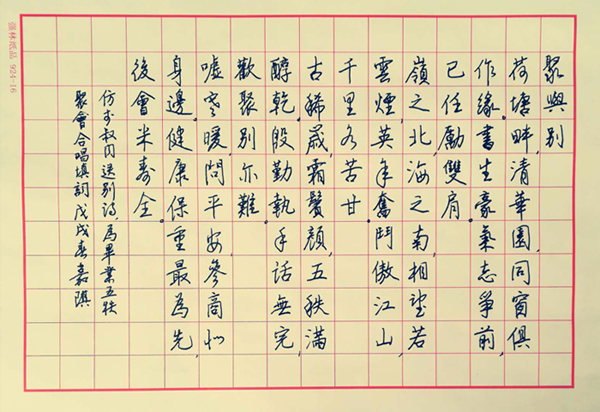 聚與別
荷塘畔,清華園,同窗俱
作緣。書生豪氣志爭前,
已任勵雙肩。
嶺之北,海之南,相望若
雲煙,英年奮鬥傲江山,
千里各苦甘。
古稀歲,霜鬢顏,五秩滿
醇乾,殷勤執手話無完,
歡聚別亦難。
噓寒暖,問平安,參商似
身邊,健康保重最為先,
後會米壽全。
仿李叔同送別詩,為畢業五秩
聚會合唱填詞 戊戌春 嘉
林紙品 924-16